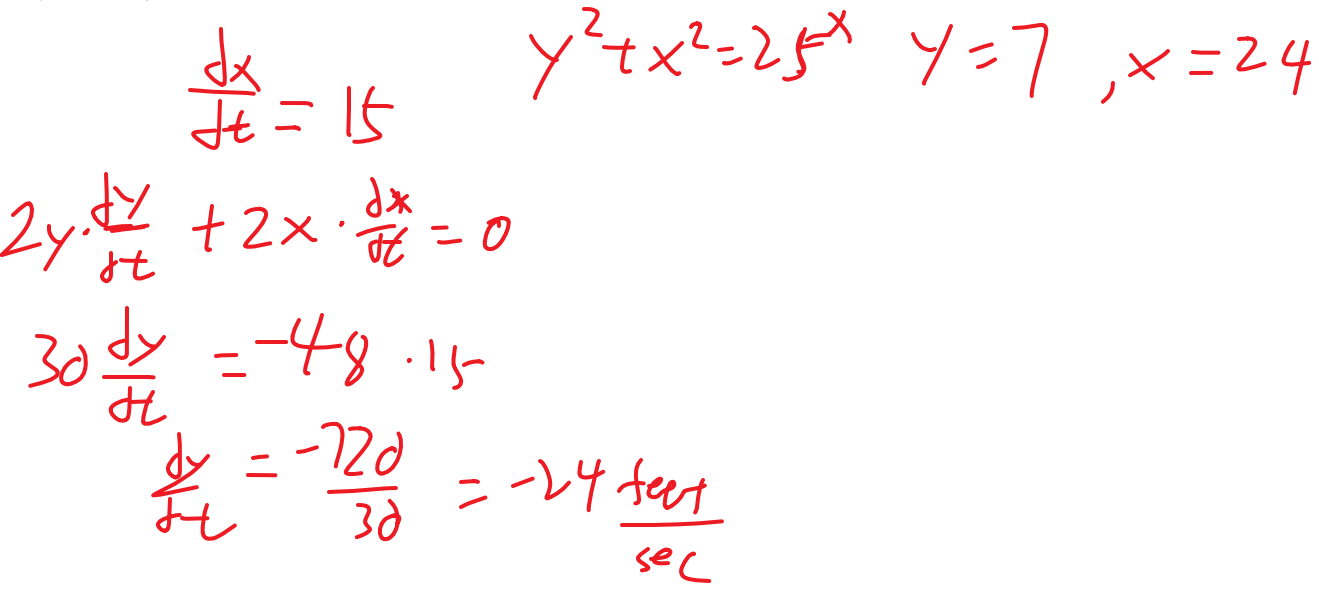 dx/dt = 15
y² + x² = 25² y = 7 , x = 24
2y · dy/dt + 2x · dx/dt = 0
30 dy/dt = -48 · 15
dy/dt = -720/30 = -24 feet/sec